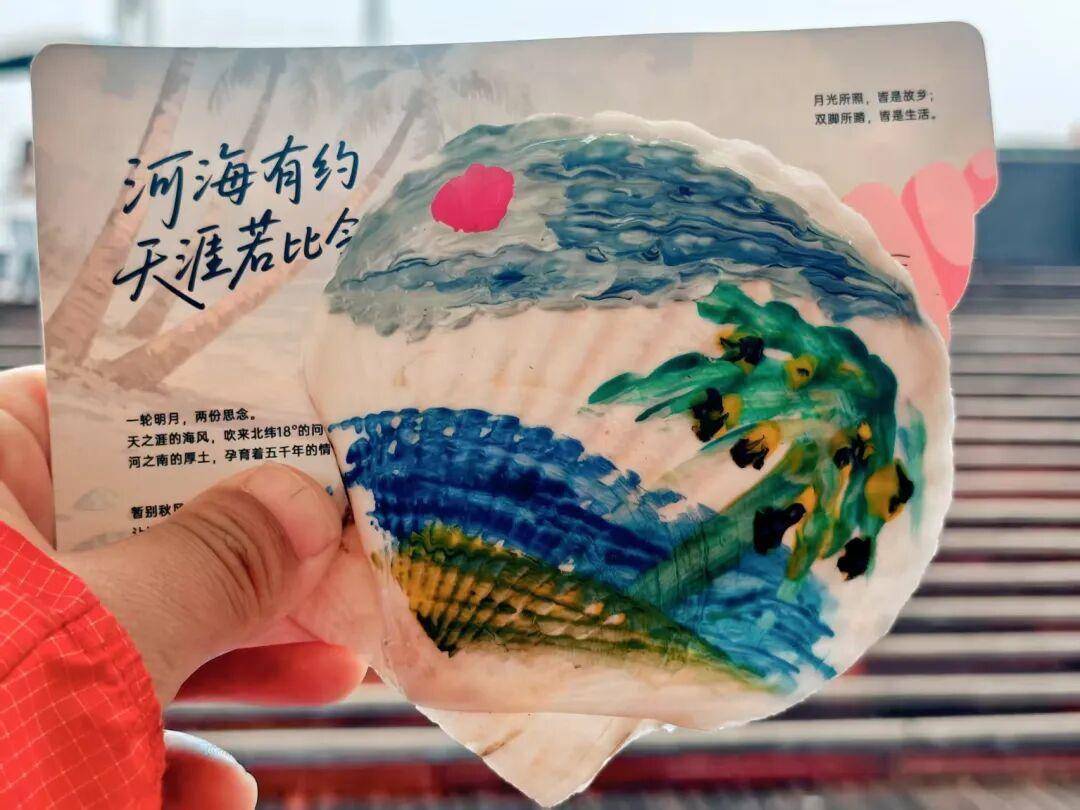 河海有约
天涯若比
月光所照，皆是故乡；
双脚所踏，皆是生活。
一轮明月，两份思念。
天之涯的海风，吹来北纬18°的问
河之南的厚土，孕育着五千年的情
暂别秋